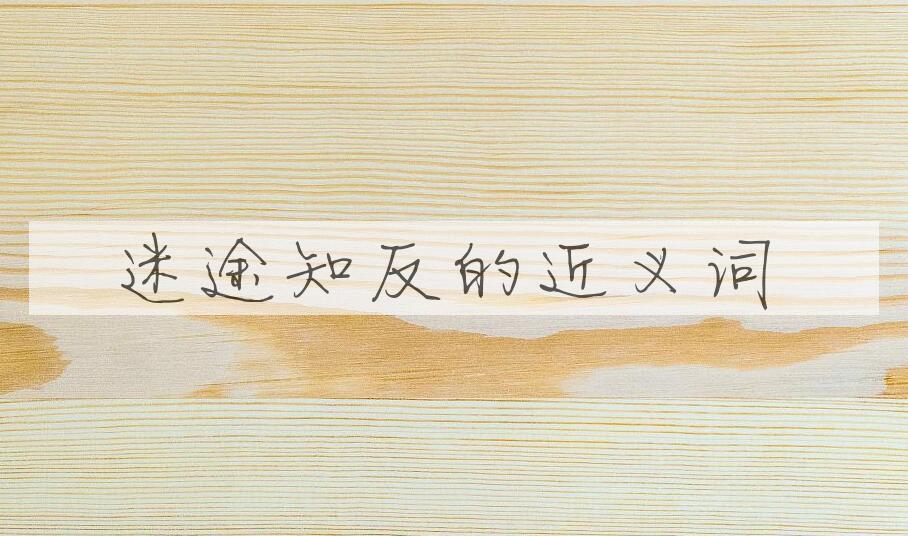 迷途知反的近义词